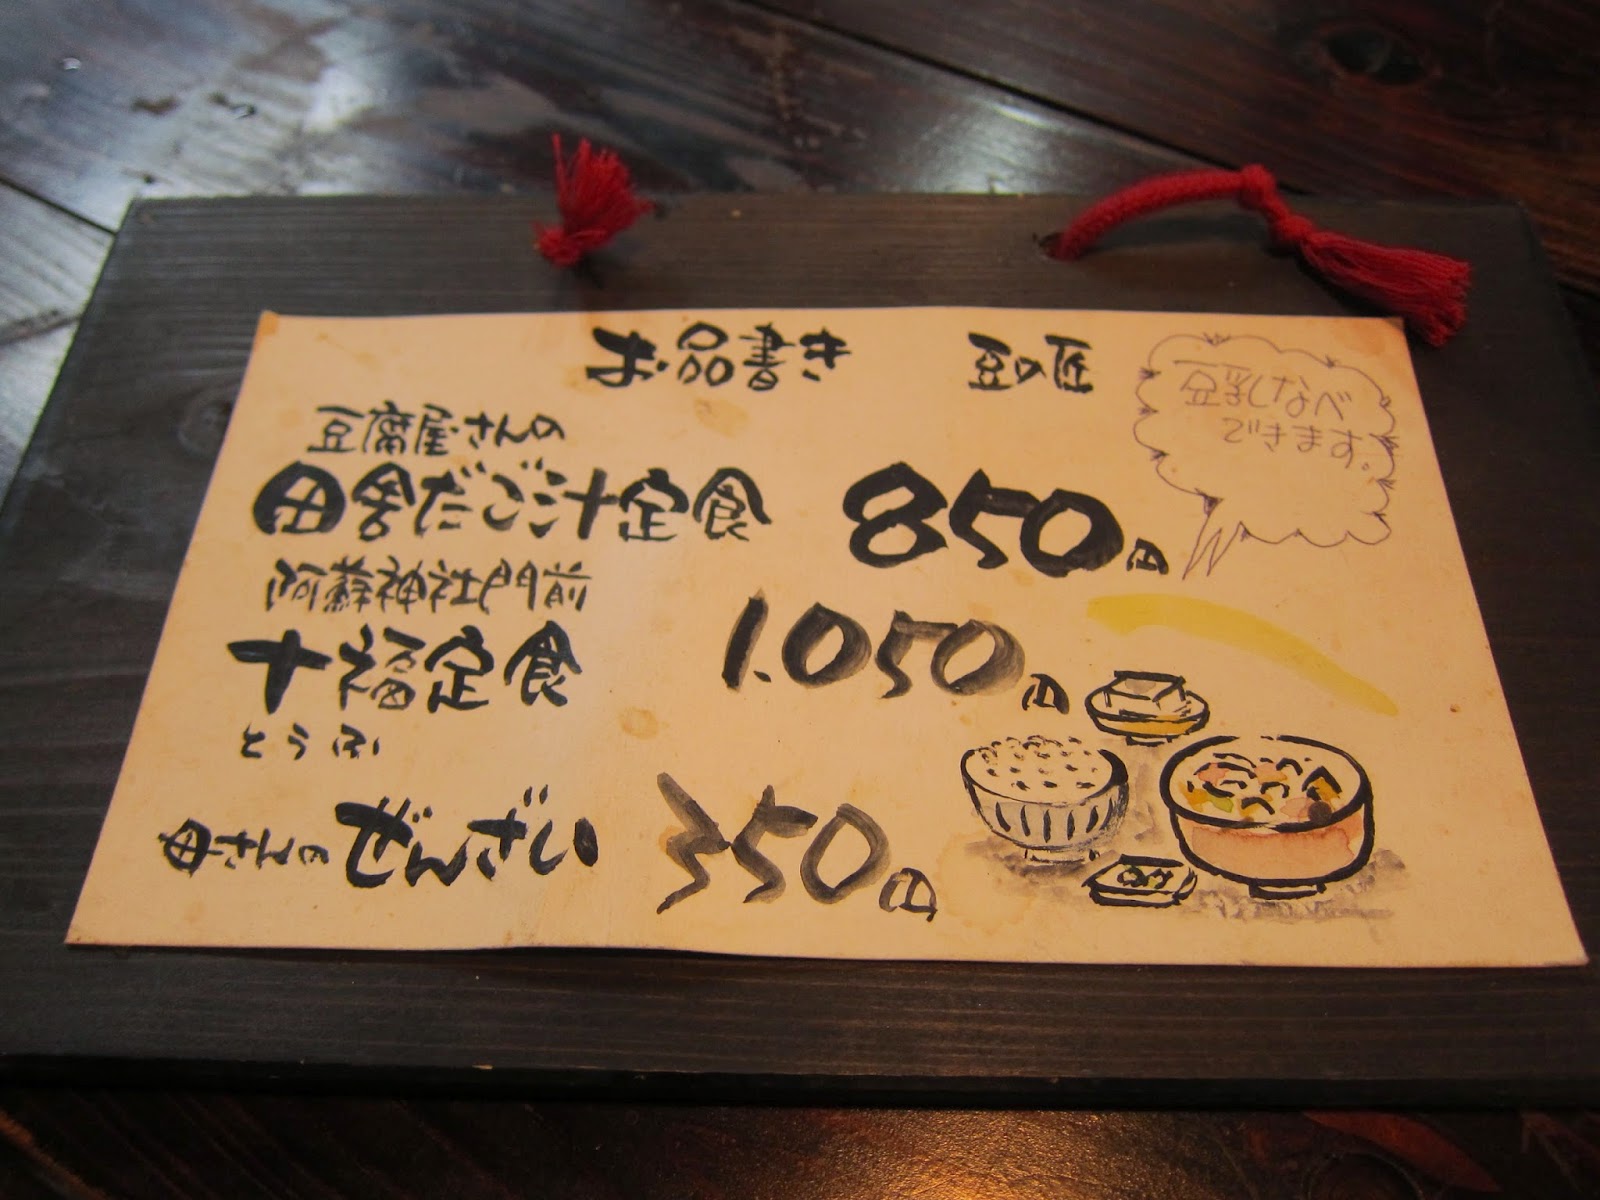 お品書き 豆の匠
豆乳なべ
できます。
豆腐屋さんの
田舎だご汁定食 850円
阿蘇神社門前
十福定食 1.050円
とうふ
母さんのぜんざい 350円